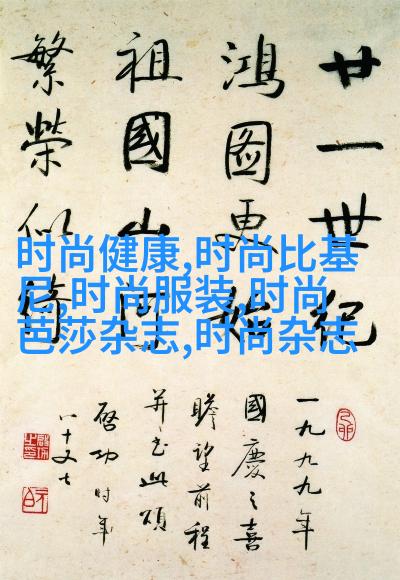 廿一世紀
鴻圖更
祖國山河
繁榮似綺
时尚健康,时尚比基
尼,时尚服装,时尚
芭莎杂志,时尚杂志
一九九九年
國慶之喜
瞻望前程
并书此頌
啓功时年
八十又七